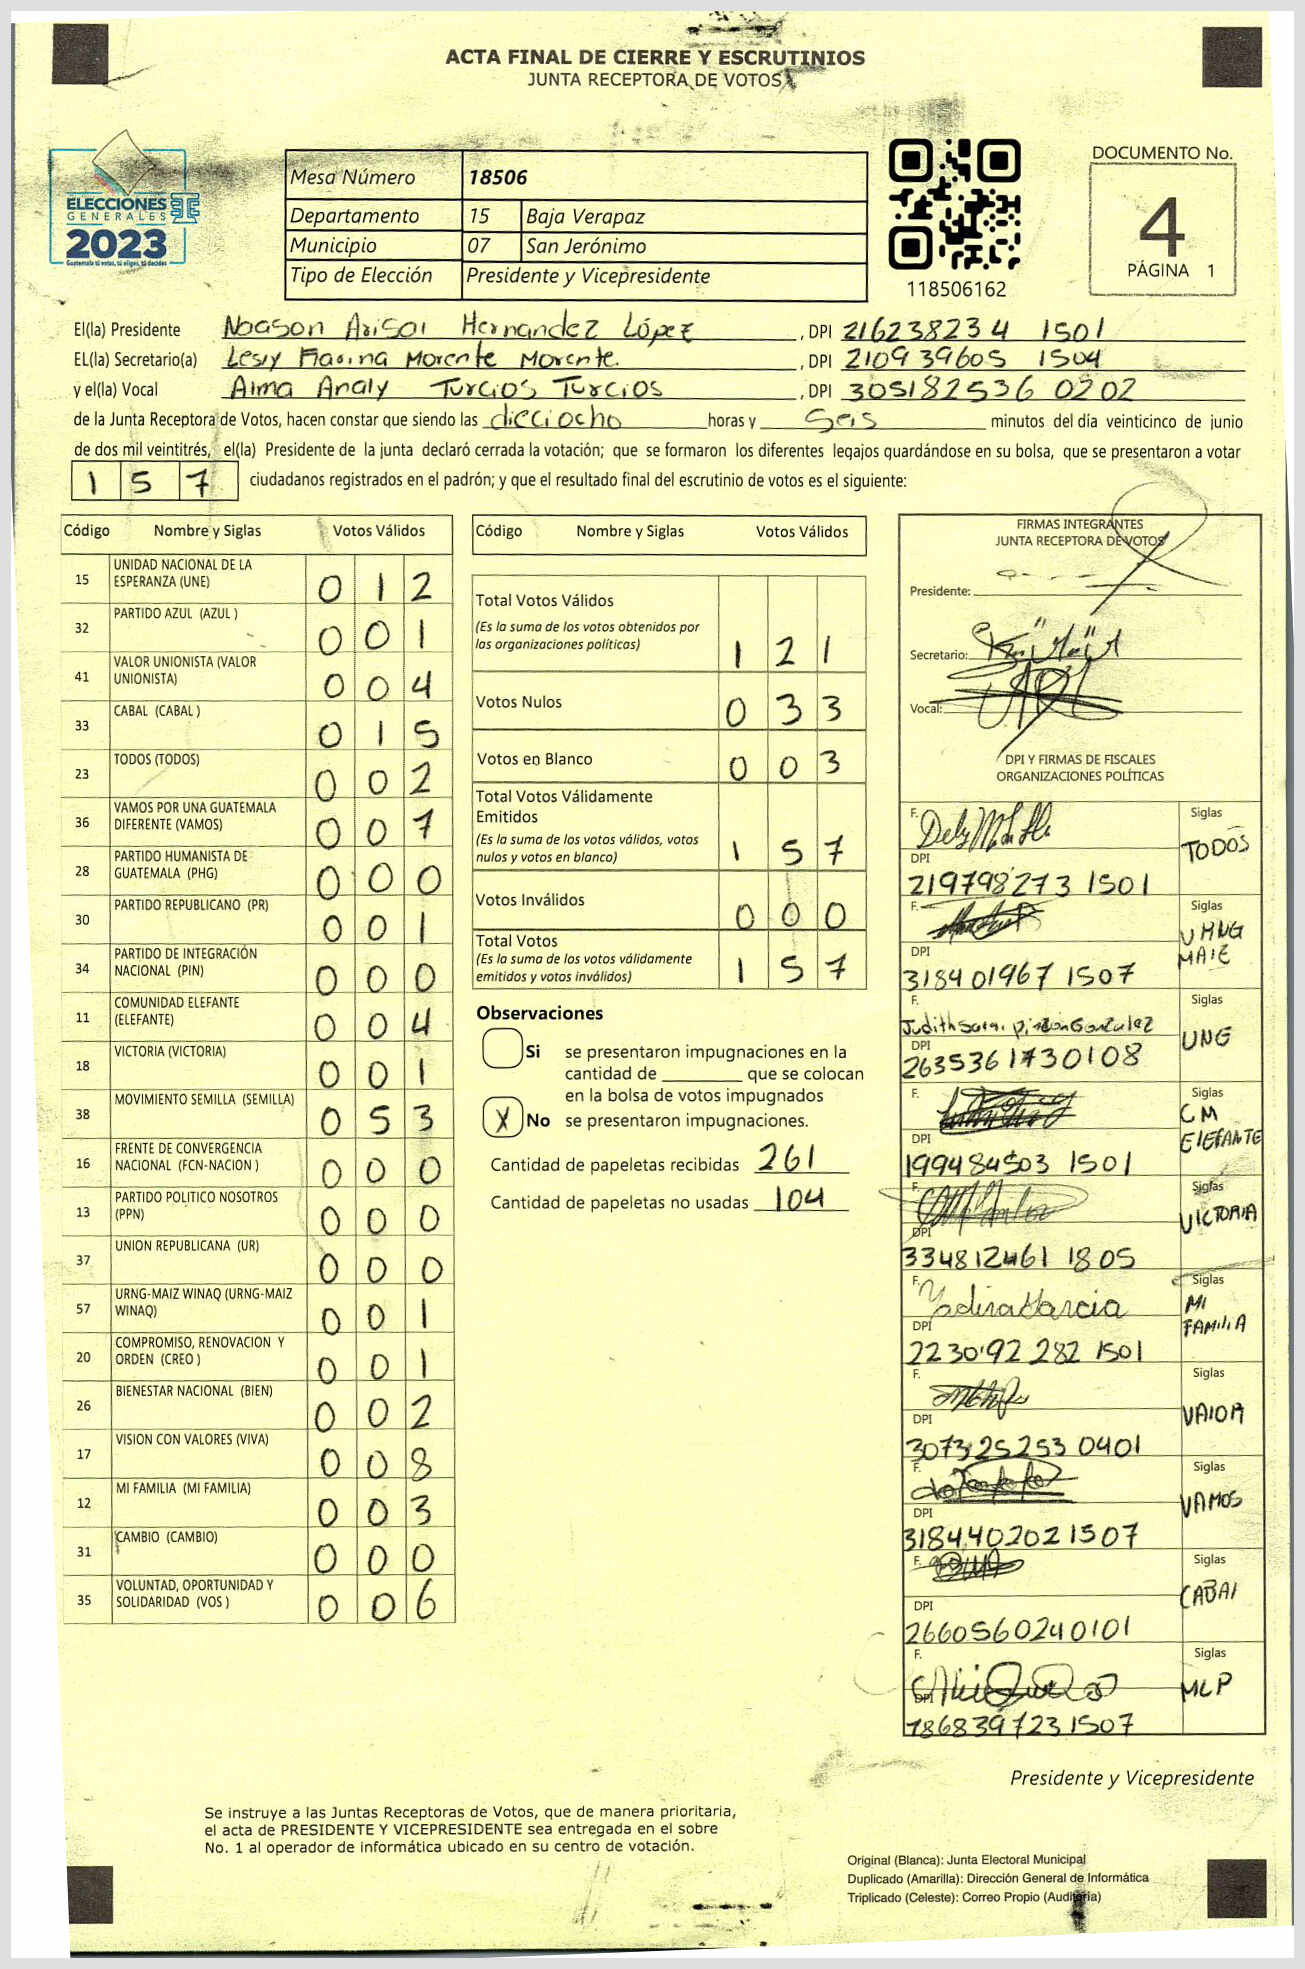 ACTA FINAL DE CIERRE Y ESCRUTINIOS
JUNTA RECEPTORA DE VOTOS
ELECCIONES
GENERALES
2023
Guatemala tú votas, tú eliges, tú decides
Mesa Número 18506
Departamento 15 Baja Verapaz
Municipio 07 San Jerónimo
Tipo de Elección Presidente y Vicepresidente
118506162
DOCUMENTO No.
4
PÁGINA 1
El(la) Presidente Noason Arisai Hernandez López, DPI 216238234 1501
EL(la) Secretario(a) Morente Morente., DPI 210939605 1504
y el(la) Vocal Alma Analy Turcios Turcios, DPI 305182536 0202
de la Junta Receptora de Votos, hacen constar que siendo las dieciocho horas y Seis minutos del día veinticinco de junio
de dos mil veintitrés, el(la) Presidente de la junta declaró cerrada la votación; que se formaron los diferentes legajos guardándose en su bolsa, que se presentaron a votar
157 ciudadanos registrados en el padrón; y que el resultado final del escrutinio de votos es el siguiente:
Código Nombre y Siglas Votos Válidos
15 UNIDAD NACIONAL DE LA ESPERANZA (UNE) 012
32 PARTIDO AZUL (AZUL ) 001
41 VALOR UNIONISTA (VALOR UNIONISTA) 004
33 CABAL (CABAL ) 015
23 TODOS (TODOS) 002
36 VAMOS POR UNA GUATEMALA DIFERENTE (VAMOS) 007
28 PARTIDO HUMANISTA DE GUATEMALA (PHG) 000
30 PARTIDO REPUBLICANO (PR) 001
34 PARTIDO DE INTEGRACIÓN NACIONAL (PIN) 000
11 COMUNIDAD ELEFANTE (ELEFANTE) 004
18 VICTORIA (VICTORIA) 001
38 MOVIMIENTO SEMILLA (SEMILLA) 053
16 FRENTE DE CONVERGENCIA NACIONAL (FCN-NACION ) 000
13 PARTIDO POLITICO NOSOTROS (PPN) 000
37 UNION REPUBLICANA (UR) 000
57 URNG-MAIZ WINAQ (URNG-MAIZ WINAQ) 001
20 COMPROMISO, RENOVACION Y ORDEN (CREO ) 001
26 BIENESTAR NACIONAL (BIEN) 002
17 VISION CON VALORES (VIVA) 008
12 MI FAMILIA (MI FAMILIA) 003
31 CAMBIO (CAMBIO) 000
35 VOLUNTAD, OPORTUNIDAD Y SOLIDARIDAD (VOS ) 006
Código Nombre y Siglas Votos Válidos
Total Votos Válidos
(Es la suma de los votos obtenidos por
las organizaciones políticas) 121
Votos Nulos 033
Votos en Blanco 003
Total Votos Válidamente
Emitidos
(Es la suma de los votos válidos, votos
nulos y votos en blanco) 157
Votos Inválidos 000
Total Votos
(Es la suma de los votos válidamente
emitidos y votos inválidos) 157
Observaciones
Si se presentaron impugnaciones en la
cantidad de ________ que se colocan
en la bolsa de votos impugnados
X No se presentaron impugnaciones.
Cantidad de papeletas recibidas 261
Cantidad de papeletas no usadas 104
FIRMAS INTEGRANTES
JUNTA RECEPTORA DE VOTOS
Presidente:
Secretario:
Vocal:
DPI Y FIRMAS DE FISCALES
ORGANIZACIONES POLÍTICAS
F. Siglas
TODOS
DPI
219798273 1501
F. Siglas
URNG
MAIZ
DPI
318401967 1507
F. Siglas
Judith Gonzalez
UNE
DPI
2635361730108
F. Siglas
CM
ElEFANTE
DPI
199484503 1501
F. Siglas
VICTORIA
DPI
334812461 1805
F. Siglas
Yadira Garcia
MI
FAMiliA
DPI
223092 282 1501
F. Siglas
VAlOR
DPI
307325253 0401
F. Siglas
VAMOS
DPI
3184402021507
F. Siglas
CABAl
DPI
2660560240101
F. Siglas
MLP
DPI
1868397231507
Presidente y Vicepresidente
Se instruye a las Juntas Receptoras de Votos, que de manera prioritaria,
el acta de PRESIDENTE Y VICEPRESIDENTE sea entregada en el sobre
No. 1 al operador de informática ubicado en su centro de votación.
Original (Blanca): Junta Electoral Municipal
Duplicado (Amarilla): Dirección General de Informática
Triplicado (Celeste): Correo Propio (Auditoria)